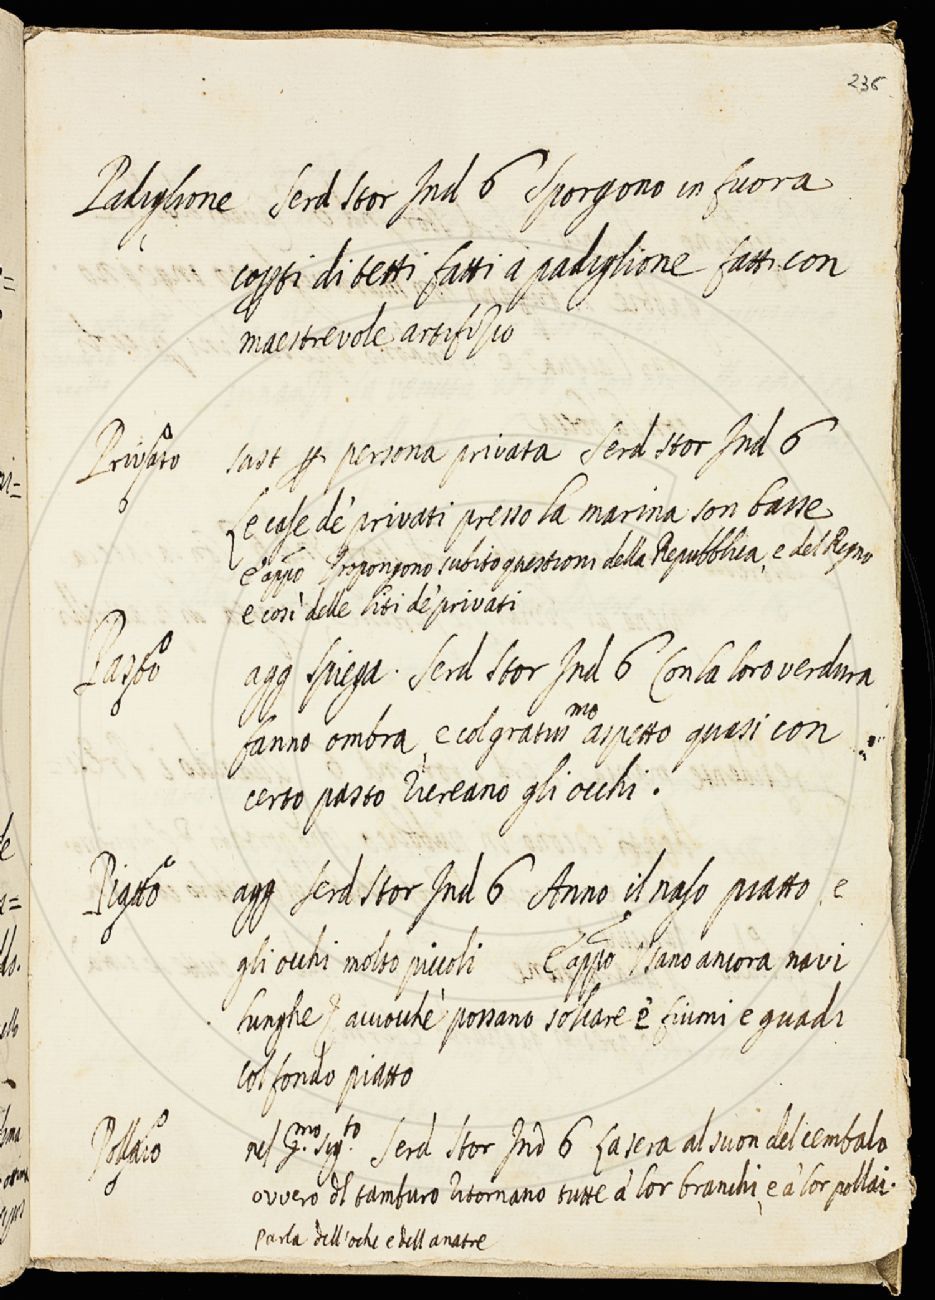 236
Padiglione Serd Stor Ind 6 Sporgono in fuora
cossti di tetti fatti à padiglione fatti con
maestrevole artifizio
Privato sust p persona privata Serd Stor Ind 6
Le case de' privati presso la marina son basse
e appo Propongono subito questioni della Repubblica, e del Regno
e così delle liti de' privati
Pasto agg spiega. Serd Stor Ind 6 Con la loro verdura
fanno ombra, e col gratismo aspetto quasi con
certo pasto ricreano gli occhi.
Piatto agg Serd Stor Ind 6 Anno il naso piatto, e
gli occhi molto piccoli E appo Usano ancora navi
lunghe acciocchè possano solcare e fiumi e guadi
col fondo piatto
Pollaio nel pmo sigto. Serd Stor Ind 6 La sera al suon del cembalo
ovvero dl tamburo ritornano tutte à lor branchi, e à lor pollai.
Parla dell'oche e dell anatre